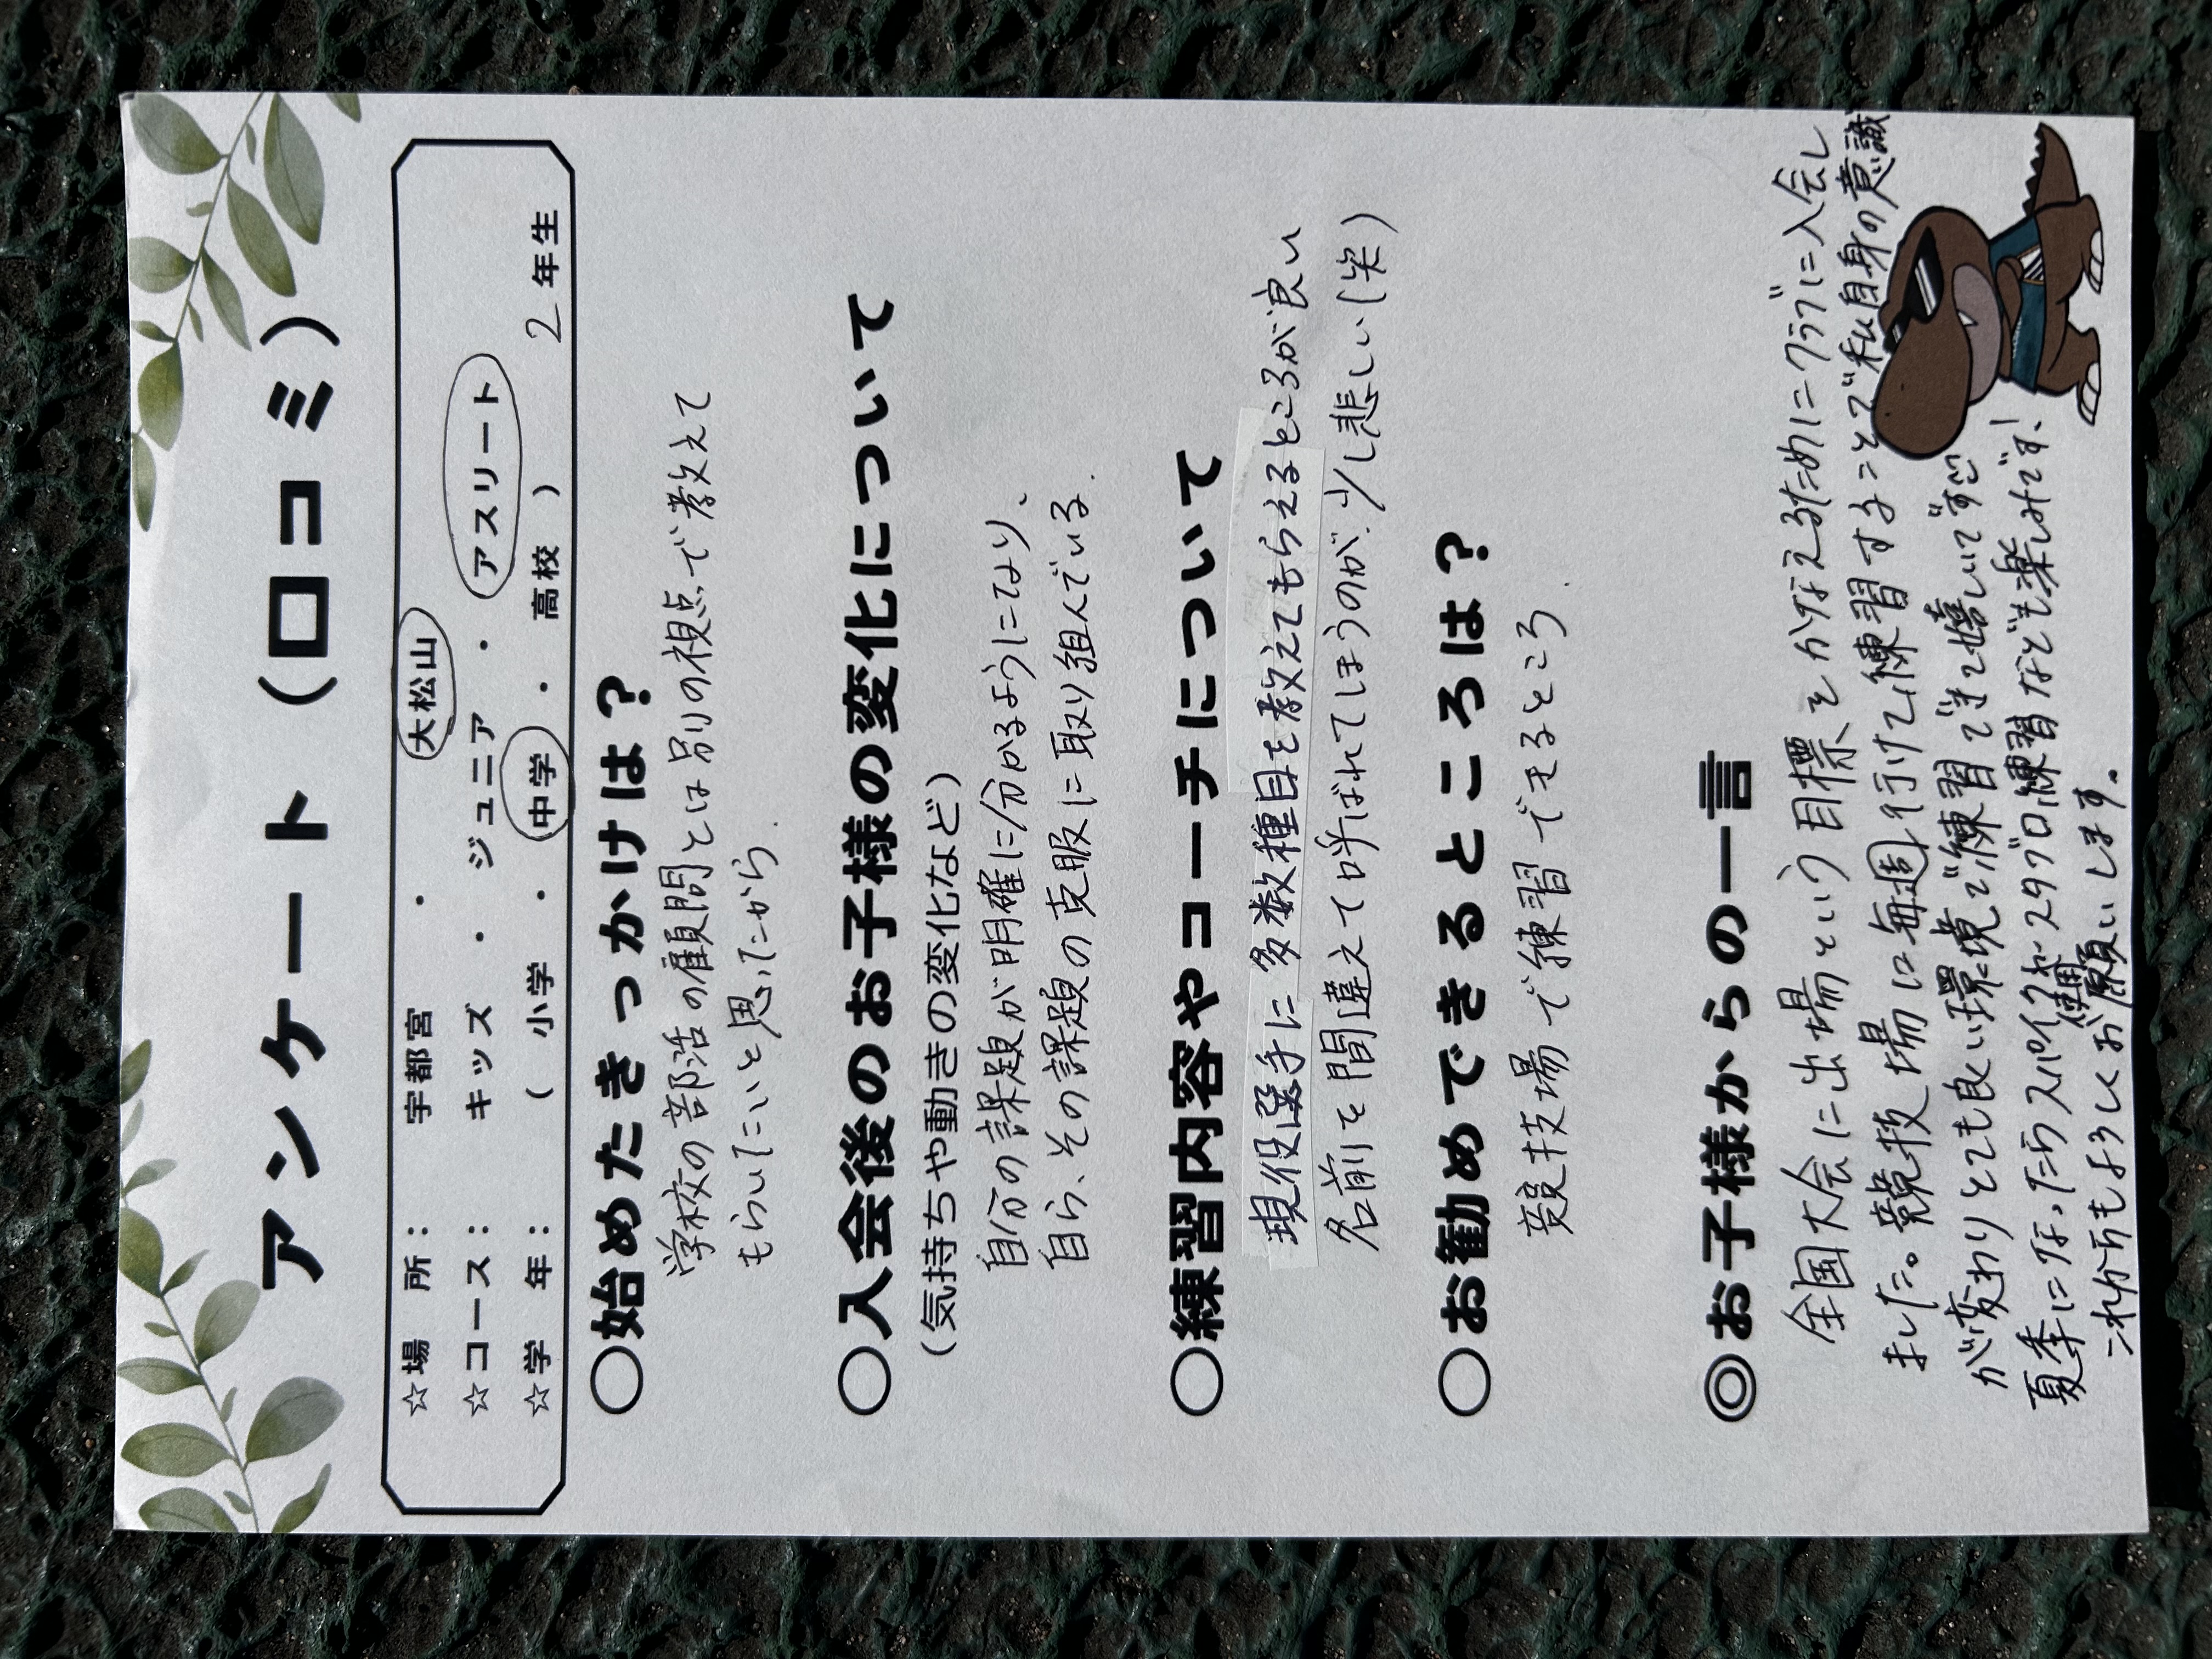 アンケート（口コミ）
☆場　所：　宇都宮　・　大松山
☆コース：　キッズ　・　ジュニア　・　アスリート
☆学　年：　（　小学　・　中学　・　高校　）　2年生
○始めたきっかけは？
学校の部活の顧問とは別の視点で教えて
もらいたいと思ったから.
○入会後のお子様の変化について
（気持ちや動きの変化など）
自分の課題が明確に分かるようになり、
自ら、その課題の克服に取り組んでいる.
○練習内容やコーチについて
現役選手に多数種目を教えてもらえるところが良い
名前を間違えて呼ばれてしまうのが、少し悲しい（笑）
○お勧めできるところは？
競技場で練習できるところ.
◎お子様からの一言
全国大会に出場という目標をかなえるためにクラブに入会し
ました。競技場に毎週行けて、練習することで私自身の意識
が変わりとても良い環境で練習できて嬉しいです☺
夏季になったらスパイクやスタブロ練習なども楽しみです!
使用
これからもよろしくお願いします。